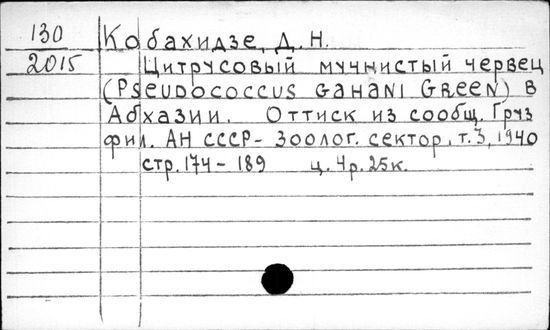 130 Кобахидзе, Д. Н.
2015 Цитрусовый мучнистый червец
(Pseudococcus Gahani Green) в
Абхазии. Оттиск из сообщ. Груз
фил. АН СССР - Зоолог. сектор, т.3, 1940
стр. 174-189 ц. 4р. 25к.